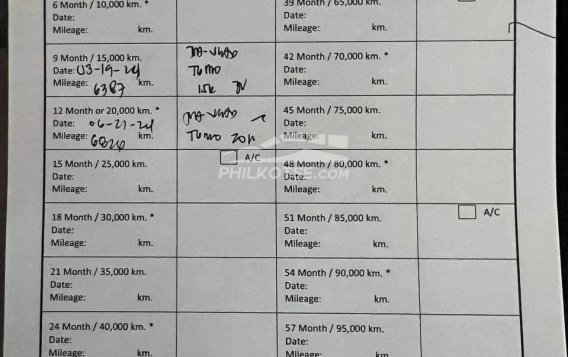 6 Month / 10,000 km. *
Date:
Mileage: km.
9 Month / 15,000 km.
Date: 03-19-24
Mileage: 6387 km.
15k
12 Month or 20,000 km. *
Date: 06-21-24
Mileage: 6826 km.
20k
15 Month / 25,000 km. A/C
Date:
Mileage: km.
18 Month / 30,000 km. *
Date:
Mileage: km.
21 Month / 35,000 km.
Date:
Mileage: km.
24 Month / 40,000 km. *
Date:
Mileage: km.
39 Month / 65,000 km.
Date:
Mileage: km.
42 Month / 70,000 km. *
Date:
Mileage: km.
45 Month / 75,000 km.
Date:
Mileage: km.
48 Month / 80,000 km. *
Date:
Mileage: km.
51 Month / 85,000 km. A/C
Date:
Mileage: km.
54 Month / 90,000 km. *
Date:
Mileage: km.
57 Month / 95,000 km.
Date:
Mileage: km.
PHILKOTSE.COM